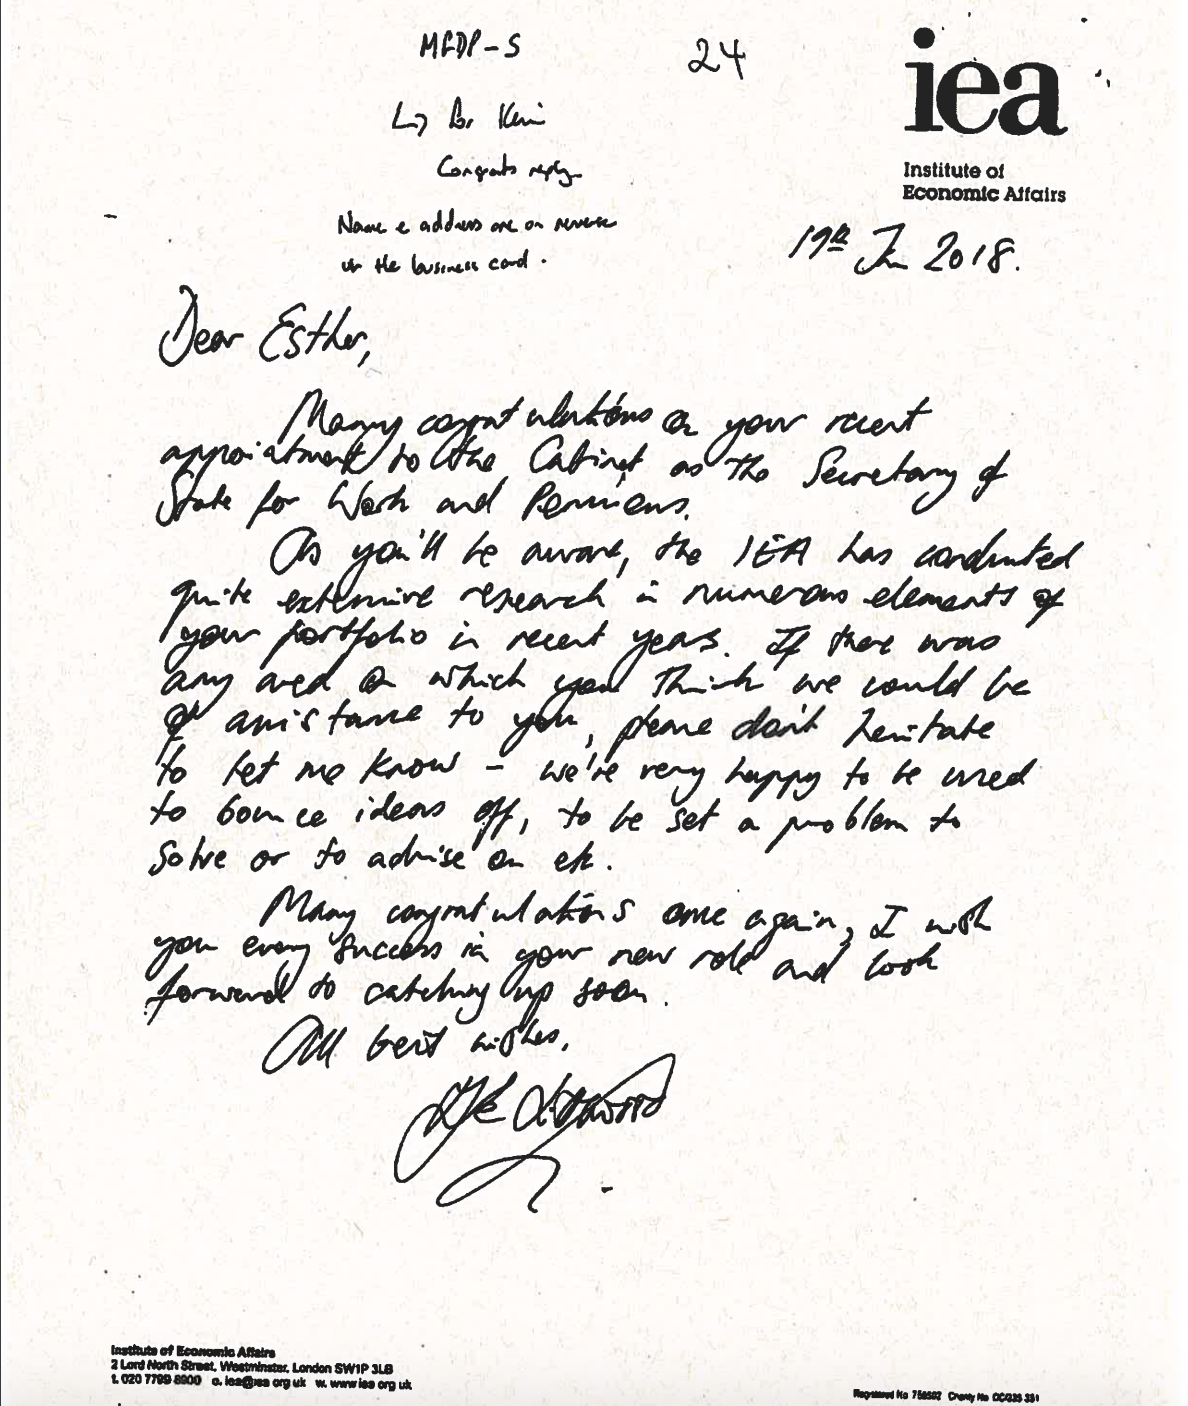 MFDP-S
24
iea
Institute of
Economic Affairs
Congrats reply
Name & address are on reverse
the business card.
19th Jan 2018.
Dear Esther,
Many congratulations on your recent
appointment to the Cabinet as the Secretary of
State for Work and Pensions.
As you'll be aware, the IEA has conducted
quite extensive research in numerous elements of
your portfolio in recent years. If there was
any area on which you think we could be
of assistance to you, please don't hesitate
to let me know – we're very happy to be used
to bounce ideas off, to be set a problem to
solve or to advise on etc.
Many congratulations once again, I wish
you every success in your new role and look
forward to catching up soon.
All best wishes,
Littlewood
Institute of Economic Affairs
2 Lord North Street, Westminster, London SW1P 3LB
t. 020 7799 8900 e. iea@iea org uk w. www iea org uk
Registered No 755502 Charity No CC/235 351